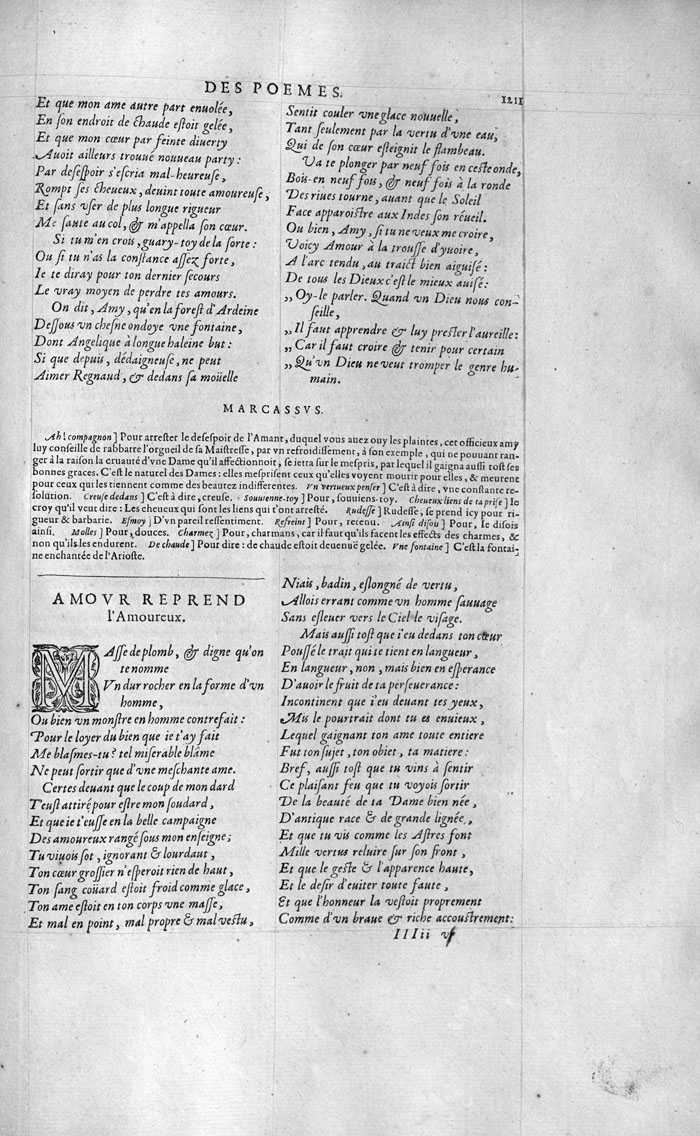 DES POEMES. 1211
Et que mon ame autre part enuolée,
En son endroit de chaude estoit gelée,
Et que mon cœur par feinte diuerty
Auoit ailleurs trouué nouueau party :
Par desespoir s'escria mal-heureuse,
Rompt ses cheueux, deuint toute amoureuse,
Et sans vser de plus longue rigueur
Me saute au col, & m'appella son cœur.
Si tu m'en crois, guary-toy de la sorte :
Ou si tu n'as la constance assez forte,
Ie te diray pour ton dernier secours
Le vray moyen de perdre tes amours.
On dit, Amy, qu'en la forest d'Ardeine
Dessous vn chesne ondoye vne fontaine,
Dont Angelique à longue haleine but :
Si que depuis, dédaigneuse, ne peut
Aimer Regnaud, & dedans sa moüelle
Sentit couler vne glace nouuelle,
Tant seulement par la vertu d'vne eau,
Qui de son cœur esteignit le flambeau.
Va te plonger par neuf fois en ceste onde,
Bois-en neuf fois, & neuf fois à la ronde
Des riues tourne, auant que le Soleil
Face apparoistre aux Indes son réueil.
Ou bien, Amy, si tu ne veux me croire,
Voicy Amour à la trousse d'yuoire,
A l'arc tendu, au traict bien aiguisé :
De tous les Dieux c'est le mieux auisé :
„ Oy-le parler. Quand vn Dieu nous con-
seille,
„ Il faut apprendre & luy prester l'aureille :
„ Car il faut croire & tenir pour certain
„ Qu'vn Dieu ne veut tromper le genre hu-
main.
MARCASSVS.
Ah! compagnon] Pour arrester le desespoir de l'Amant, duquel vous auez ouy les plaintes, cet officieux amy
luy conseille de rabbatre l'orgueil de sa Maistresse, par vn refroidissement, à son exemple, qui ne pouuant ran-
ger à la raison la cruauté d'vne Dame qu'il affectionnoit, se ietta sur le mespris, par lequel il gaigna aussi tost ses
bonnes graces. C'est le naturel des Dames : elles mesprisent ceux qu'elles voyent mourir pour elles, & meurent
pour ceux qui les tiennent comme des beautez indifferentes. Vn vertueux penser] C'est à dire, vne constante re-
solution. Creuse dedans] C'est à dire, creuse. Souuienne-toy] Pour, souuiens-toy. Cheueux liens de ta prise] Ie
croy qu'il veut dire : Les cheueux qui sont les liens qui t'ont arresté. Rudesse] Rudesse, se prend icy pour ri-
gueur & barbarie. Esmoy] D'vn pareil ressentiment. Refreint] Pour, retenu. Ainsi disou] Pour, Ie disois
ainsi. Molles] Pour, douces. Charmez] Pour, charmans, car il faut qu'ils facent les effects des charmes, &
non qu'ils les endurent. De chaude] Pour dire : de chaude estoit deuenuë gelée. Vne fontaine] C'est la fontai-
ne enchantée de l'Arioste.
AMOVR REPREND
l'Amoureux.
MAsse de plomb, & digne qu'on
te nomme
Vn dur rocher en la forme d'vn
homme,
Ou bien vn monstre en homme contrefait :
Pour le loyer du bien que ie t'ay fait
Me blasmes-tu? tel miserable blâme
Ne peut sortir que d'vne meschante ame.
Certes deuant que le coup de mon dard
T'eust attiré pour estre mon soudard,
Et que ie t'eusse en la belle campaigne
Des amoureux rangé sous mon enseigne;
Tu viuois sot, ignorant & lourdaut,
Ton cœur grossier n'esperoit rien de haut,
Ton sang coüard estoit froid comme glace,
Ton ame estoit en ton corps vne masse,
Et mal en point, mal propre & mal vestu,
Niais, badin, eslongné de vertu,
Allois errant comme vn homme sauuage
Sans esleuer vers le Ciel le visage.
Mais aussi tost que i'eu dedans ton cœur
Poussé le trait qui te tient en langueur,
En langueur, non, mais bien en esperance
D'auoir le fruit de ta perseuerance :
Incontinent que i'eu deuant tes yeux,
Mis le pourtrait dont tu es enuieux,
Lequel gaignant ton ame toute entiere
Fut ton sujet, ton obiet, ta matiere :
Bref, aussi tost que tu vins à sentir
Ce plaisant feu que tu voyois sortir
De la beauté de ta Dame bien née,
D'antique race & de grande lignée,
Et que tu vis comme les Astres font
Mille vertus reluire sur son front,
Et que le geste & l'apparence haute,
Et le desir d'euiter toute faute,
Et que l'honneur la vestoit proprement
Comme d'vn braue & riche accoustrement:
IIIii v